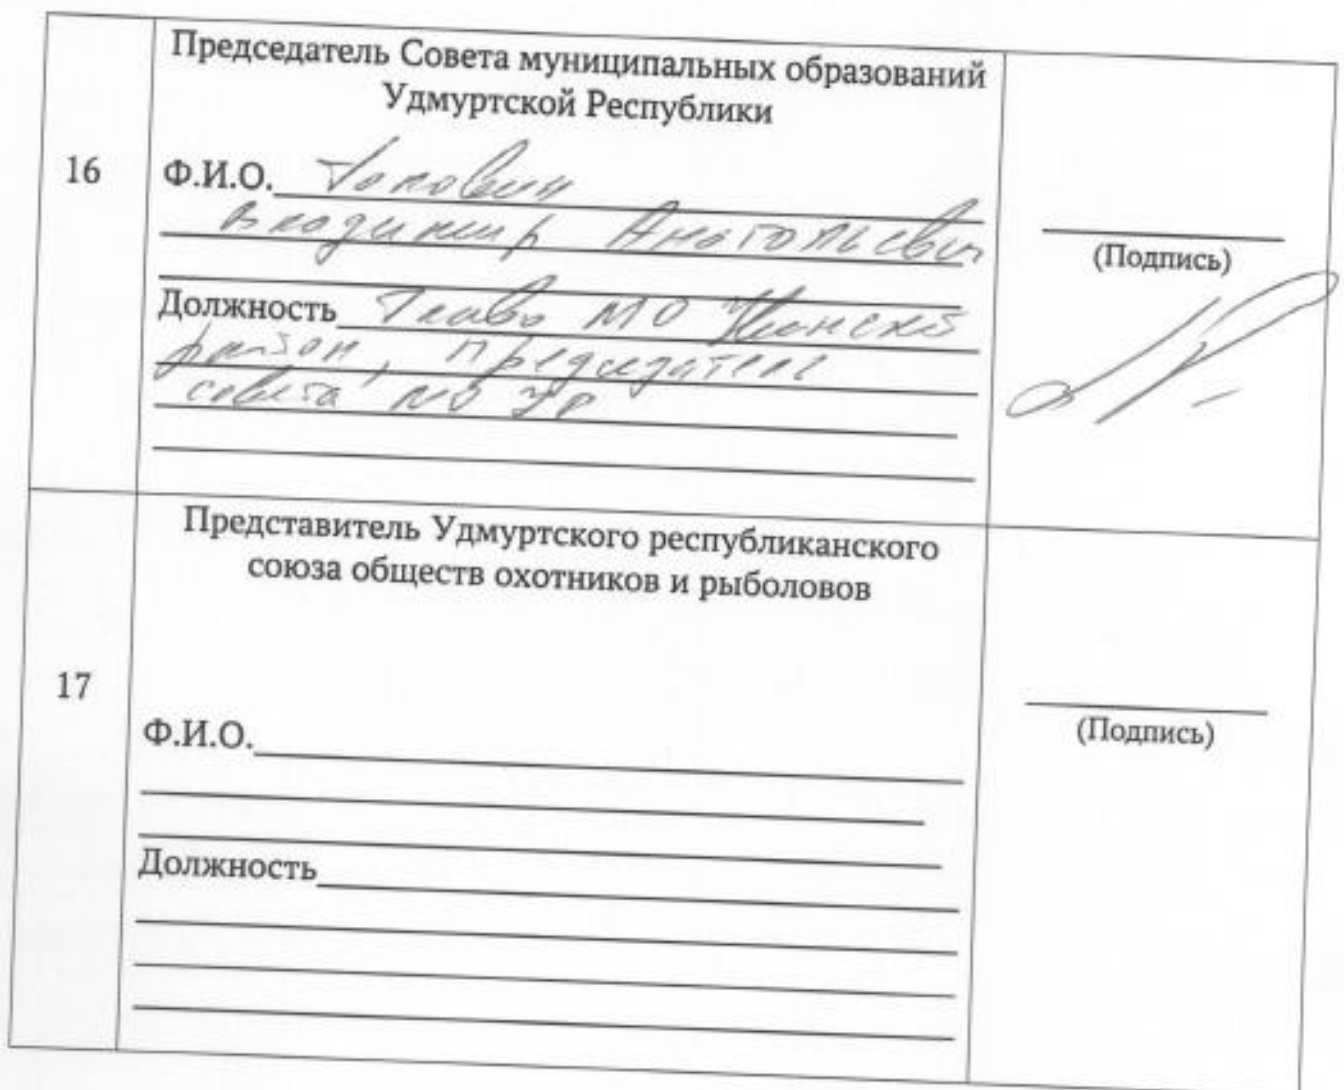 Председатель Совета муниципальных образований
Удмуртской Республики
16
Ф.И.О. Головин
Владимир Анатольевич
(Подпись)
Должность Глава МО
район, председатель
совета МО УР
Представитель Удмуртского республиканского
союза обществ охотников и рыболовов
17
Ф.И.О.
(Подпись)
Должность